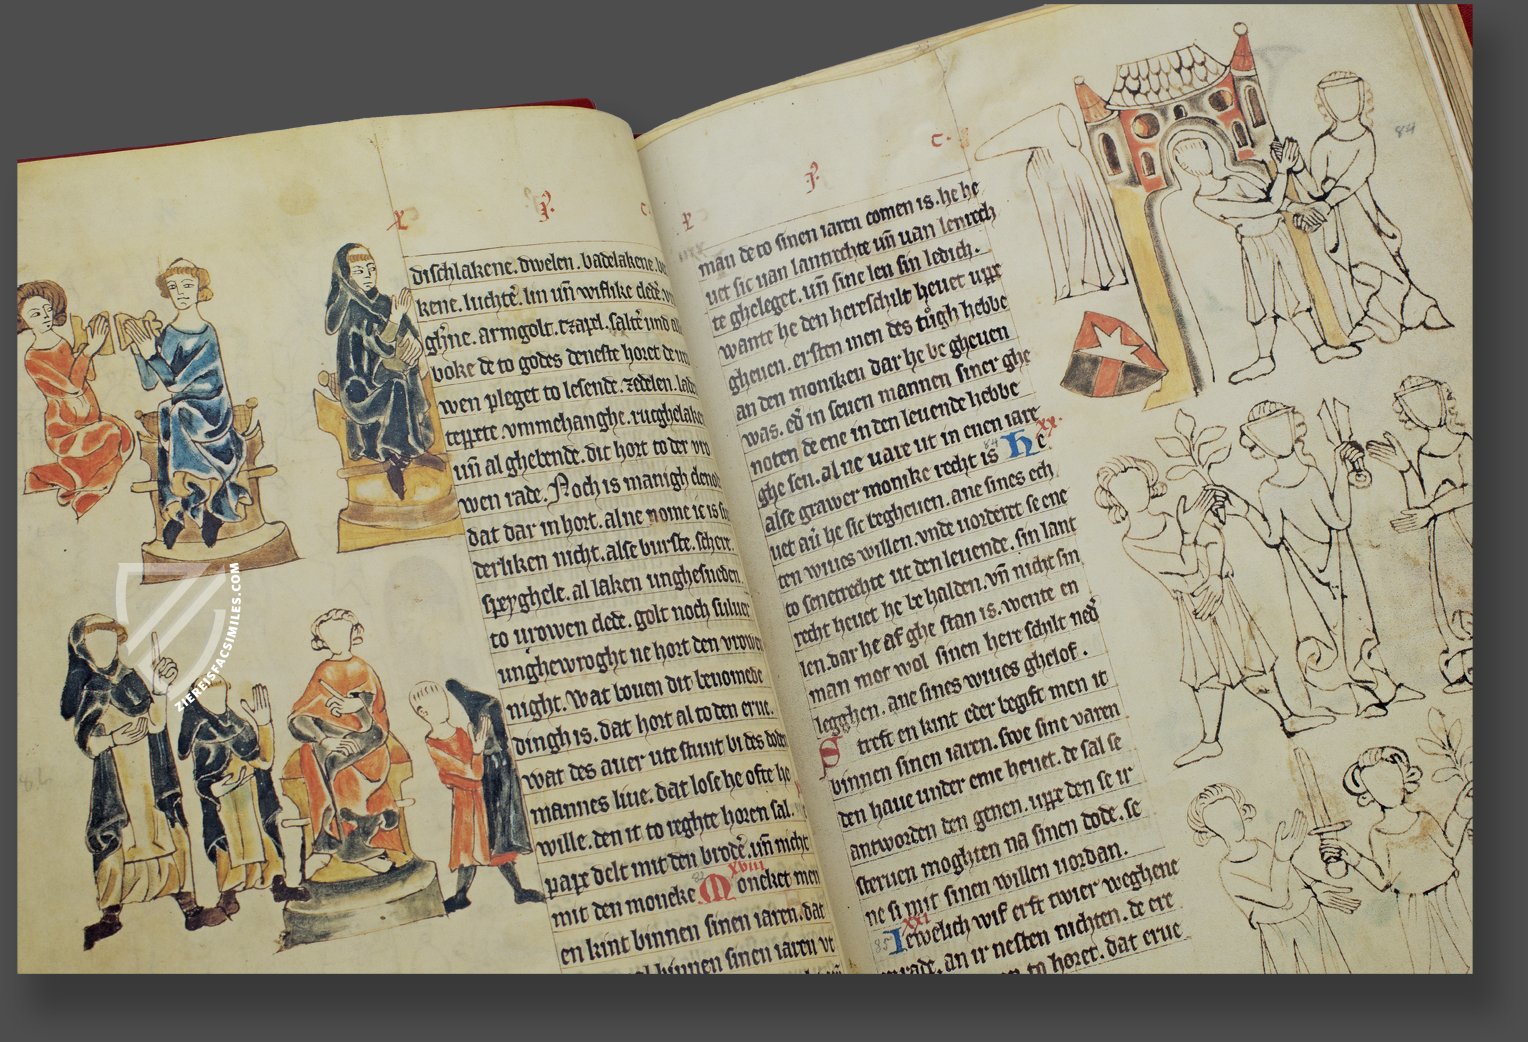 dischlakene. dwelen. badelakene.
kene. luchtē. lin uñ wiflike cledē.
gyne. armgolt. tzapel. saltē und al
boke de to godes deneste horet de
wen pleget to lesende. zedelen. lade
teppete. ummehanghe. rugghelaken
uñ al ghebende. dit hort to der vro
wen rade. Noch is manigh cleno
dat dar in hort. al ne nome ic is
derliken nicht. alse burste. schere.
speyghele. al laken unghesneden.
to urowen cledē. golt noch suluer
unghewroght ne hort den vrowen
night. Wat bouen dit benomede
dingh is. dat hort al to den erue.
wat des auer ute stunt bi des doden
mannes liue. dat lose he ofte he
wille. den it to reghte horen sal.
pape delt mit den brodē. uñ nicht
xviii
mit den moneke 82 Moneket men
en kint binnen sinen iaren. dat
binnen sinen iaren vt
man de to sinen iaren comen is. he he
uet sic uan lantrechte uñ uan lenrech
te gheleget. uñ sine len sin ledich.
wante he den herschilt heuet uppe
gheuen. ersten men des tůgh hebbe
an den moniken dar he be gheuen
was. eđ in seuen mannen siner ghe
noten de ene in den leuende hebbe
ghe sen. al ne uare ut in enen iare
xx.
alse grawer monike recht is 84 He
uet aů he sic begheuen. ane sines ech
ten wiues willen. vnde uorderet se ene
to senetrechte ut den leuende. sin lant
recht heuet he be halden. vñ nicht sin
len. dar he af ghe stan is. wente en
man mot wol sinen here schilt neđ
legghen. ane sines wiues ghelof.
Streft en kint eder begift men it
binnen sinen iaren. swe sine varen
den haue under eme heuet. de sal se
antworden den genen. uppe den se ir
steruen moghten na sinen dode. se
ne si mit sinen willen uordan.
xxi
85 Iewelich wif erft twier weghene
rade. an ir nesten nichten. de ere
to horet. dat erue
84
ZIEREISFACSIMILES.COM